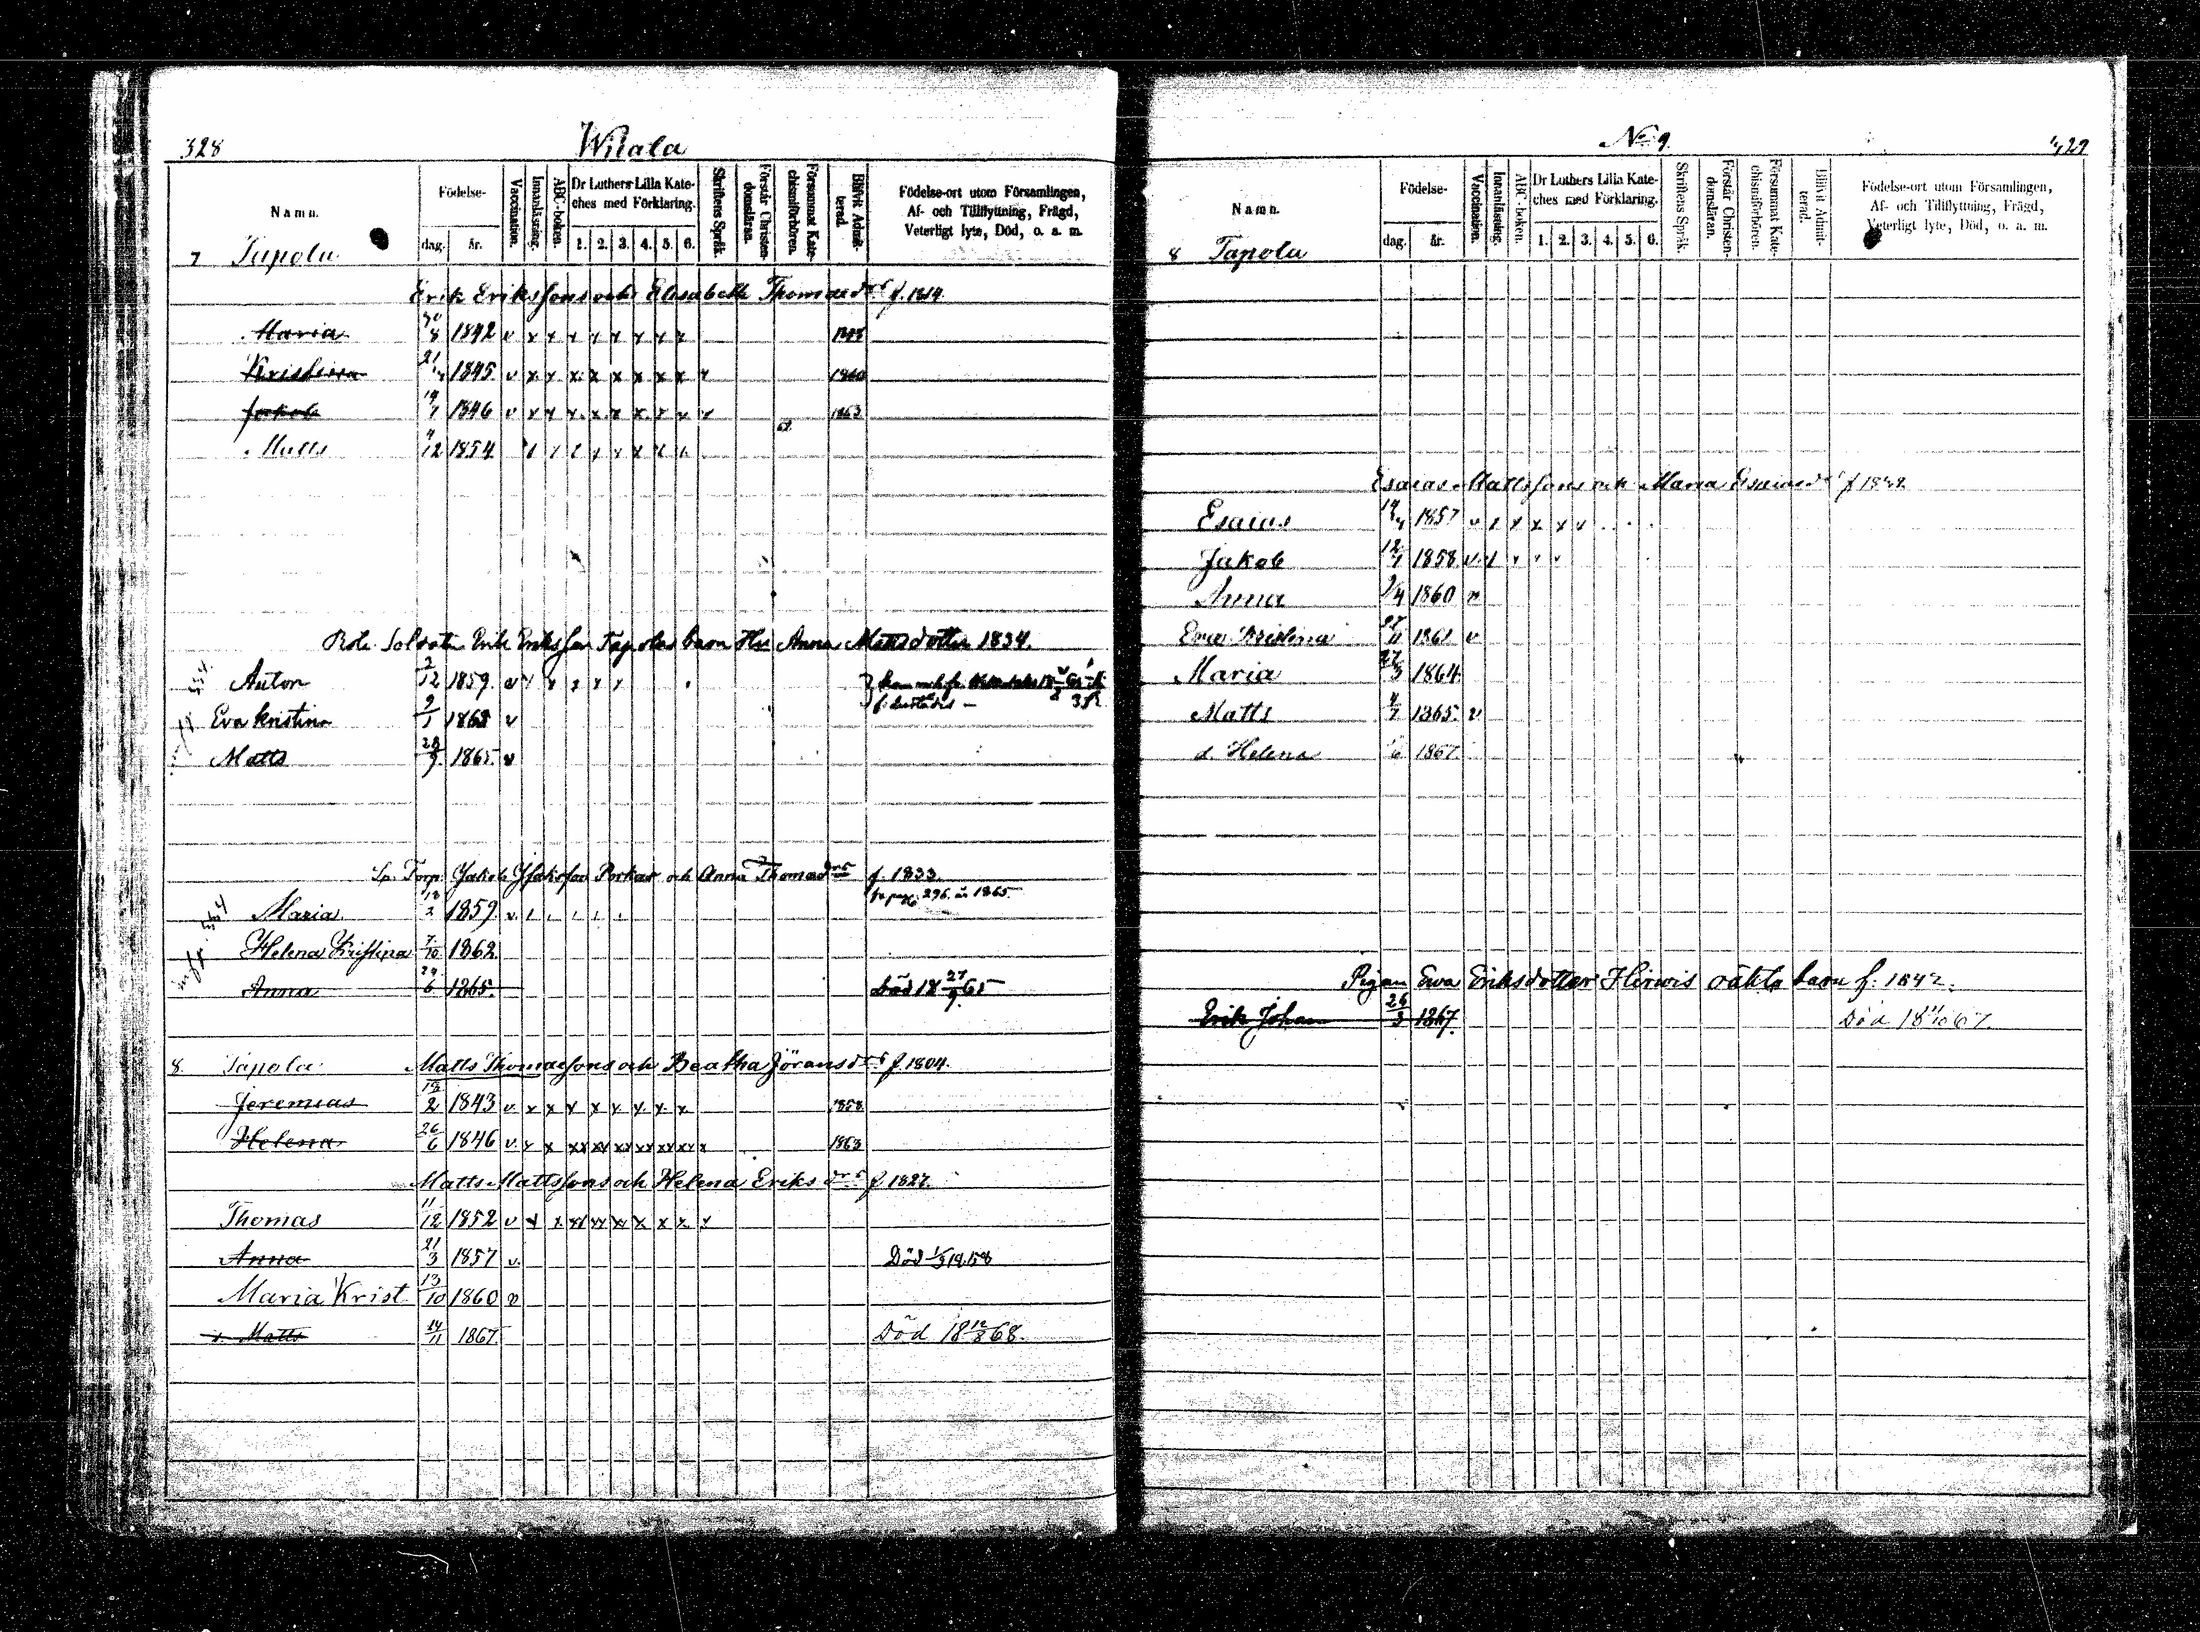 328
Wilala
Namn.
Födelse-
dag.
år.
Vaccination.
Innanläsning.
ABC-boken.
Dr Luthers Lilla Kate-
ches med Förklaring.
1. 2. 3. 4. 5. 6.
Skriftens Språk.
Förstår Christen-
domsläran.
Försummat Kate-
chismiförhören.
Blifvit Admit-
terad.
Födelse-ort utom Församlingen,
Af- och Tillflyttning, Frägd,
Veterligt lyte, Död, o. a. m.
7 Tapola
Erik Erikssons och Elisabeth Thomaedr f. 1814.
Maria 8 1842 v x x x x x x x x
Kristina 21 1845 v x x x x x x x x x 1860
Jakob 19/7 1846 v x x x x x x x x x 1863
Matts 4/12 1854
Soldaten Erik Eriksson Tapolas barn Anna Mattsdotter 1834.
Anton 2/12 1859 v
Eva Kristina 9/1 1863 v
Matts 28/9 1865 v
Torp. Jakob Porkas och Anna Thomasdr f. 1833.
fr pag. 296 1865
Maria 2 1859 v
Helena Kristina 7/10 1862
infr. 554
Anna 24/6 1865. Död 18 27/9 65
8. Tapola Matts Thomaessons och Beatha Jöransdr f. 1804.
Jeremias 12/2 1843 v x x x x x x x x 1858
Helena 26/6 1846 v x x xx xx xx xx xx xx x 1863
Matts Mattssons och Helena Eriksdr f 1827.
Thomas 11/12 1852 v x x xx xx xx x x x x
Anna 21/3 1857 v. Död 1/3 1858
Maria Krist. 13/10 1860 v
s. Matts 14/11 1867. Död 18 12/8 68.
No 9.
329
Namn.
Födelse-
dag.
år.
Vaccination.
Innanläsning.
ABC-boken.
Dr Luthers Lilla Kate-
ches med Förklaring.
1. 2. 3. 4. 5. 6.
Skriftens Språk.
Förstår Christen-
domsläran.
Försummat Kate-
chismiförhören.
Blifvit Admit-
terad.
Födelse-ort utom Församlingen,
Af- och Tillflyttning, Frägd,
Veterligt lyte, Död, o. a. m.
8 Tapola
Esaias Mattssons och Maria Esaiaedr f 1832
Esaias 1857 v x x x x v
Jakob 12/7 1858 v
Anna 1860 v
Eva Kristina 27/11 1861 v
Maria 27/3 1864
Matts 4/7 1865. v
d. Helena 1867.
Pigan Ewa Eriksdotter Hirwis oäkta barn f: 1842.
Erik Johan 26/3 1867. Död 18 11/10 67.